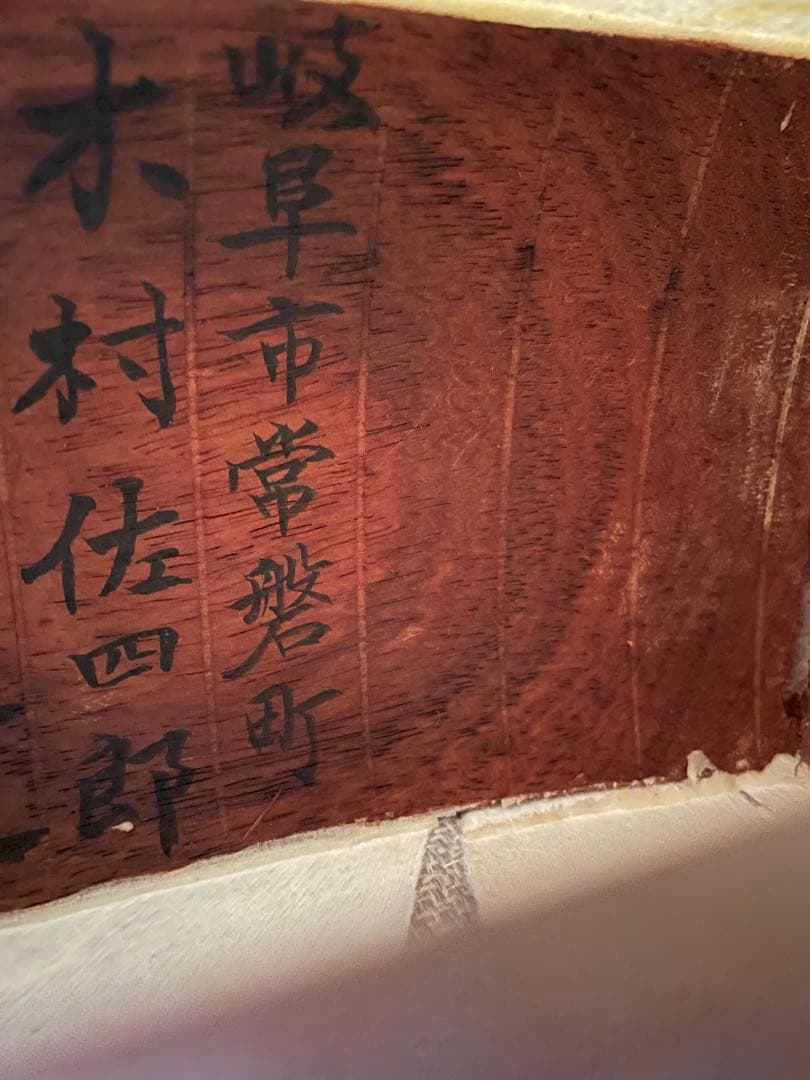 岐阜市常磐町
木村佐四郎